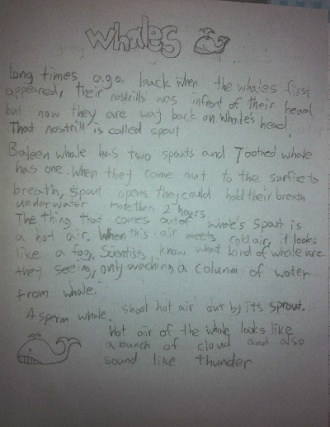 whales
long times ago, back when the whales first
appeared, their nostrills was infront of their head
but now they are way back on whale's head.
That nostrill is called spout
Baleen whale has two spouts and Toothed whale
has one. When they come out to the surface to
breath, spout opens they could hold their breath
underwater more then 2 hours.
The thing that comes out of whale's spout is
a hot air. When this air meets cold air, it looks
like a fog. Scientists, know what kind of whale are
they seeing, only waching a column of water
from whale.
A sperm whale, shoot hot air out by its sprout.
Hot air of the whale looks like
a bunch of cloud and also
sound like thunder